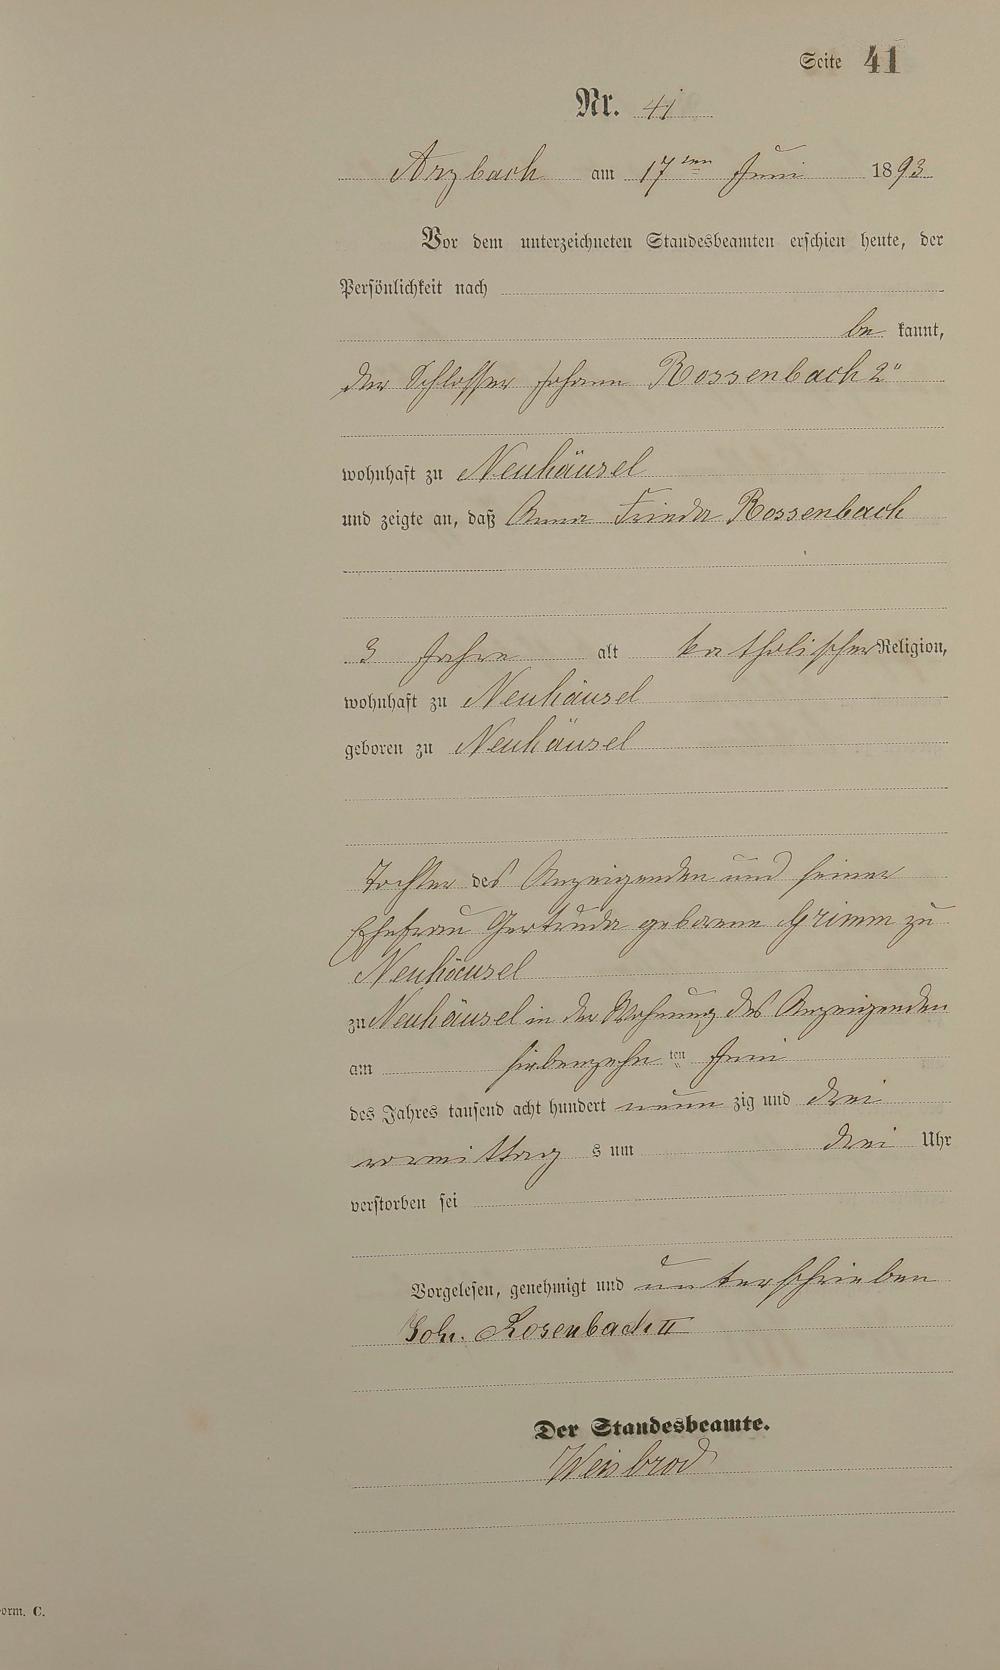 Seite 41
Nr. 41
Arzbach am 17ten Juni 1893
Vor dem unterzeichneten Standesbeamten erschien heute, der
Persönlichkeit nach
be kannt,
der Schlosser Johann Rossenbach 2"
wohnhaft zu Neuhäusel
und zeigte an, daß Anna Frieda Rossenbach
3 Jahre alt katholischer Religion,
wohnhaft zu Neuhäusel
geboren zu Neuhäusel
Tochter des Anzeigenden und seiner
Ehefrau Gertruda geborene Grimm zu
Neuhäusel
zu Neuhäusel in der Wohnung des Anzeigenden
am siebenzehnten Juni
des Jahres tausend acht hundert neun zig und drei
vormittag s um drei Uhr
verstorben sei
Vorgelesen, genehmigt und unterschrieben
Joh. Rosenbach II
Der Standesbeamte.
Weisbrod
orm. C.